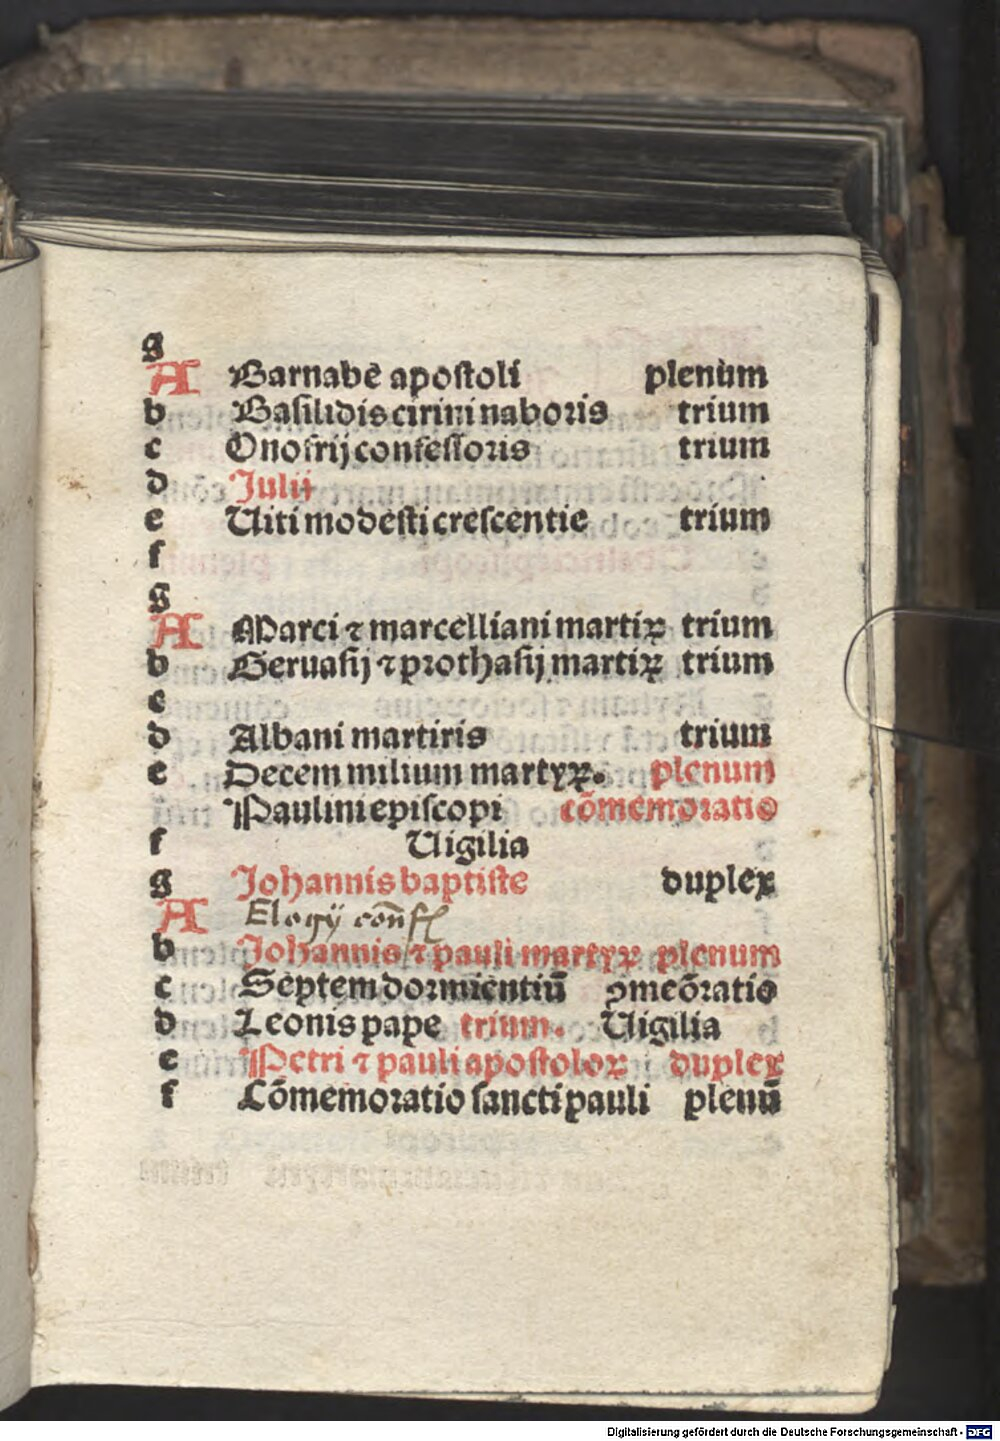 g
A Barnabe apostoli plenum
b Basilidis cirini naboris trium
c Onofrij confessoris trium
d Julij
e Uiti modesti crescentie trium
f
g
A Marci ⁊ marcelliani martiꝝ trium
b Geruasij ⁊ prothasij martiꝝ trium
c
d Albani martiris trium
e Decem milium martyꝝ. plenum
Paulini episcopi cõmemoratio
f Uigilia
g Johannis baptiste duplex
A Elogÿ conf
b Johannis ⁊ pauli martyꝝ plenum
c Septem dormientiũ ꝯmeõratio
d Leonis pape trium. Uigilia
e Petri ⁊ pauli apostoloꝝ duplex
f Cõmemoratio sancti pauli plenũ
Digitalisierung gefördert durch die Deutsche Forschungsgemeinschaft - DFG